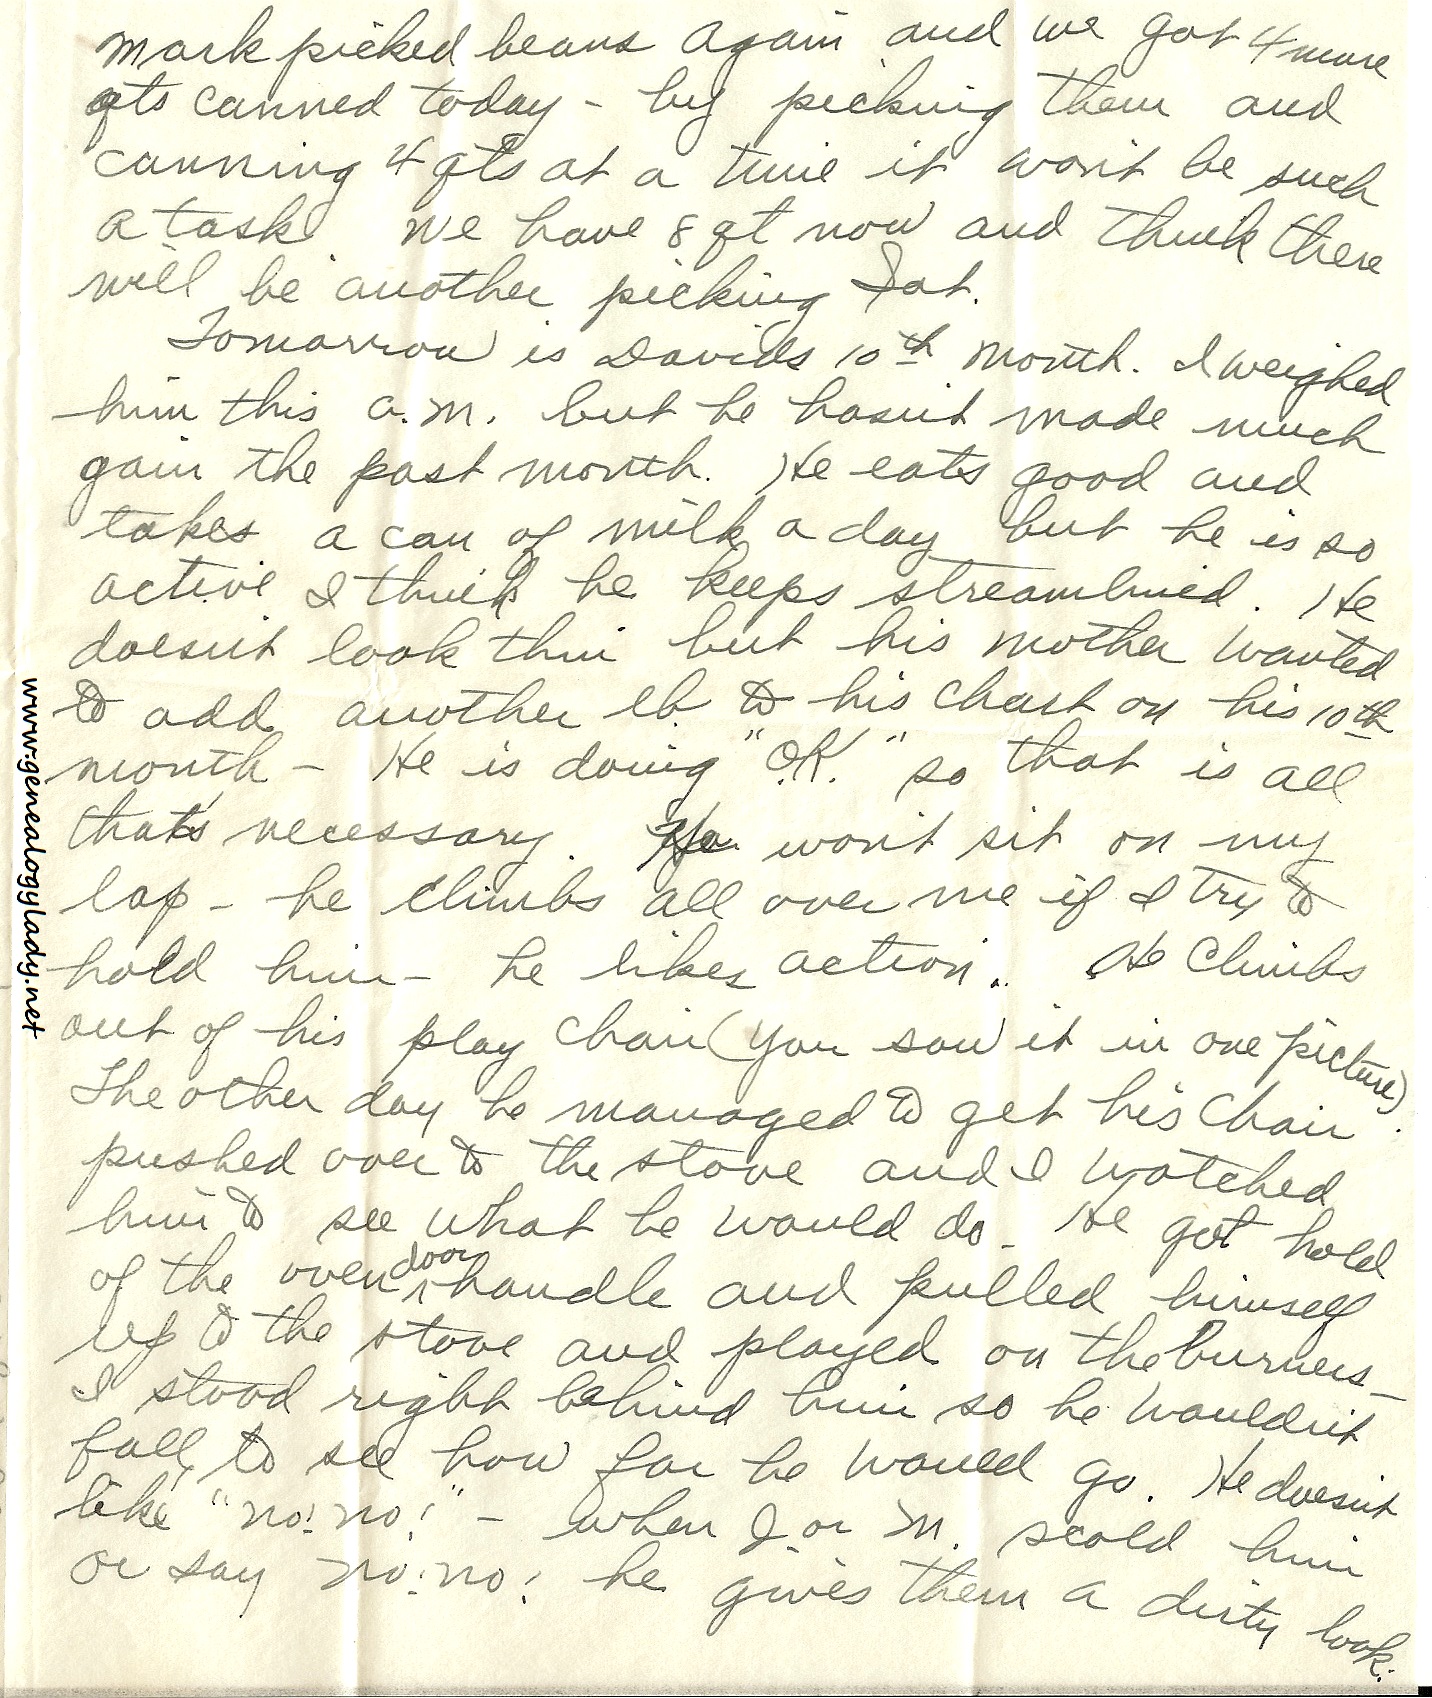 Mark picked beans again and we got 4 more
qts canned today - by picking them and
canning 4 qts at a time it won't be such
a task we have 8 qt now and think there
will be another picking Sat.
Tomorrow is Davids 10th month. I weighed
him this a.m. but he hasn't made much
gain the past month. He eats good and
takes a can of milk a day but he is so
active I think he keeps streamlined. He
doesn't look thin but his mother wanted
to add another lb to his chart on his 10th
month - He is doing "O.K." so that is all
thats necessary. He won't sit on my
lap - he climbs all over me if I try to
hold him - he likes action. He climbs
out of his play chair (you saw it in one picture)
The other day he managed to get his chair
pushed over to the stove and I watched
him to see what he would do - He got hold
of the oven door handle and pulled himself
up to the stove and played on the burners -
I stood right behind him so he wouldn't
fall, to see how far he would go. He doesn't
like "no! no!" - when J or M. scold him
or say no! no! he gives them a dirty look.
www.genealogylady.net